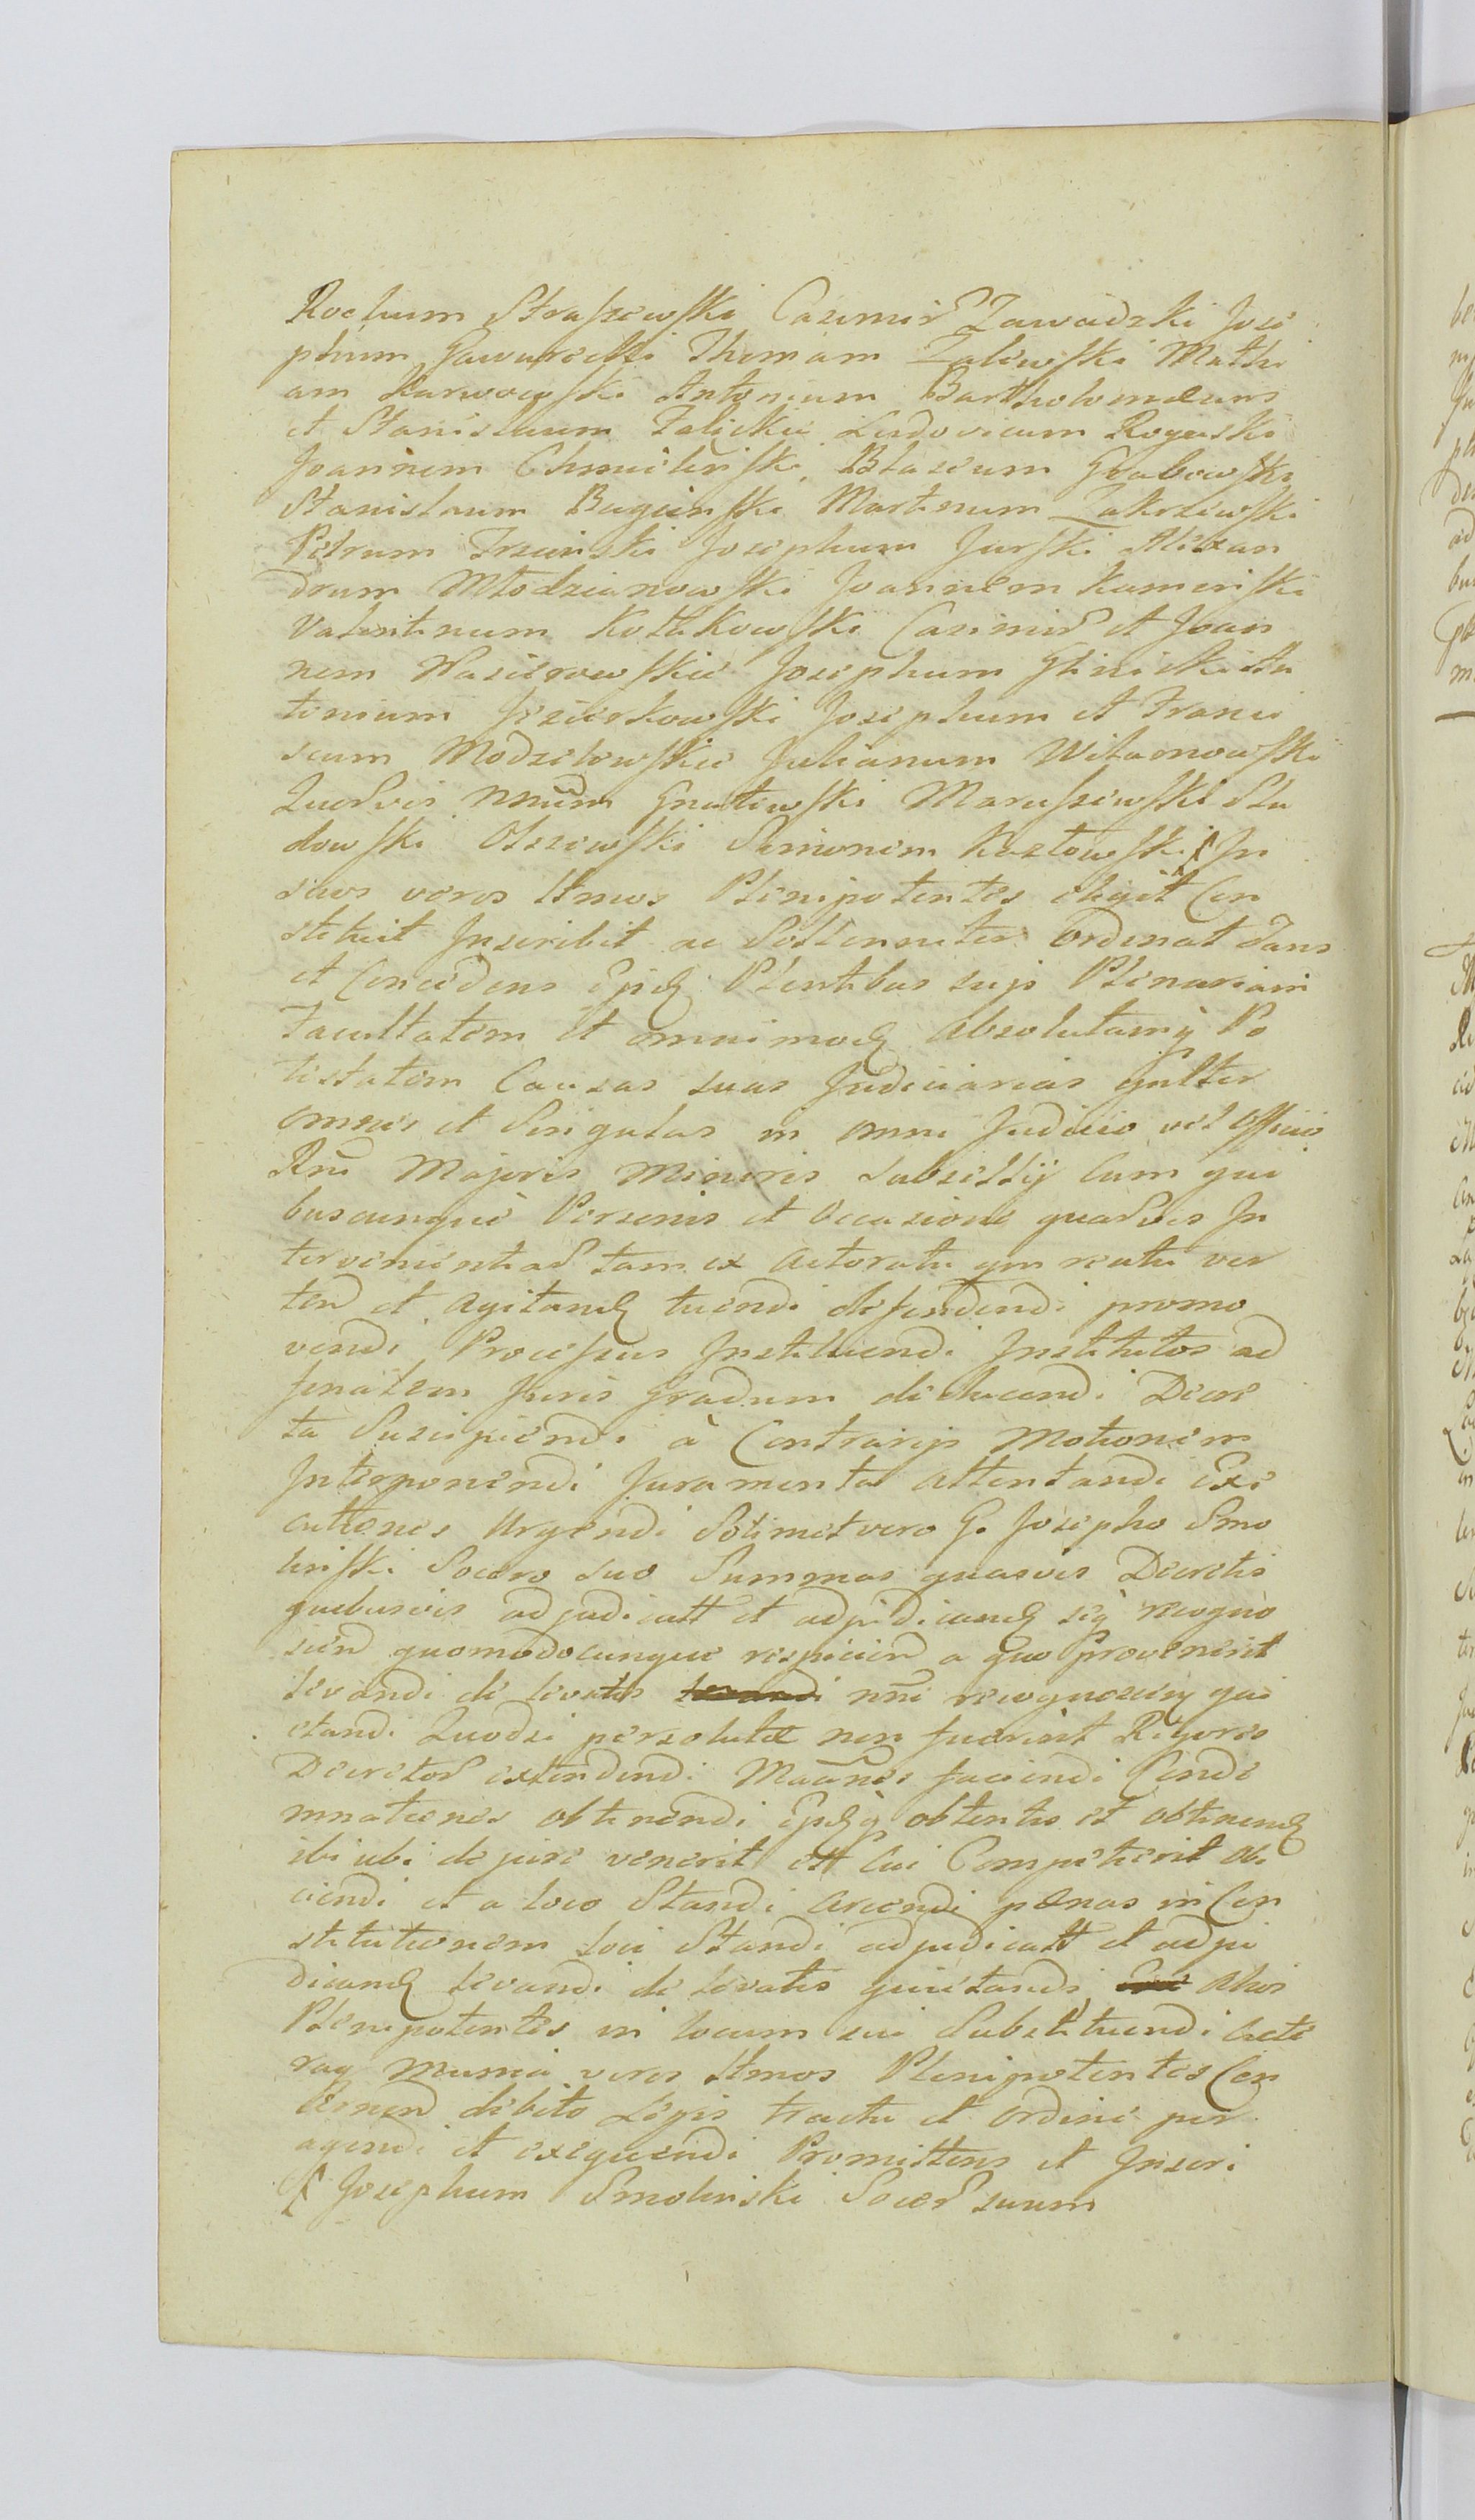 Rochum Straszewski Casimir Zawadzki Jose
phum Gawarecki Thomam Zalewski Mathi
am Karwowski Antonium Bartholomæum
et Stanislaum Zalickie Ludovicum Rogalski
Joannem Chmielinski Blasium Grabowski
Stanislaum Baginski Martinum Zakrzewski
Petrum Trzcinski Josephum Jurski Alexan
drum Młodzianowski Joannem Kamenski
Valentinum Kołakowski Casimir et Joan
nem Wasierowskie Josephum Glinicki An
tonium Jezierkowski Josephum et Franci
scum Modzelewskie Julianum Witamowski
Quosvis nnum Gnatowski Maruszewski Sta
dowski Olszewski Simonem Kozłowski In
suos veros ltmos Plenipotentes eligit Con
stituit Inscribit ac Sollenniter ordinat Dans
et Concedens Ejsd Plentibus suis Plenariam
Facultatem et omnimod absolutamq Po
testatem Causas suas Judiciarias gnlter
omnes et Singulas in omni Judicio vel officio
Rni Majoris Minoris Subsellij cum qui
buscunque Personis et occasione quasvis In
tervenient ad tam ex actoratu qm reatu ver
ten et agitand tuendi defendendi promo
vendi Processus Instituendi Institutos ad
finalem Juris Gradum deducendi Decre
ta Suscipiendi à Contrarijs Motionem
Interponendi Juramenta attentandi Exe
cutiones Urgendi Solimet vero G. Josepho Smo
linski Socero suo Summas quasvis Decretis
quibusvis adjudicatt et adjudicand seq recogno
scen quomodocunque respicien a quo provenerit
levandi de levatis levandi nni recognoscen qui
etandi Quodsi persolutæ non fuerint Rigores
Decretor extendendi Maones faciendi Conde
mnationes obtinendi Ejsdq obtentis et obtinend
ibi ubi de jure venerit ett Cui Competierit obi
ciendi et a loco Standi arcendi pœnas in Con
stitutionem loci Standi adjudicatt et adju
dicand levandi de levatis quietandi alios
Plenipotentes in locum sui Substituendi Cæte
raq Munia veros ltmos Plenipotentes Con
cernen debito Legis tractu et ordine per
agendi et exequendi Promittens et Inscri
Josephum Smolinski Socer suum